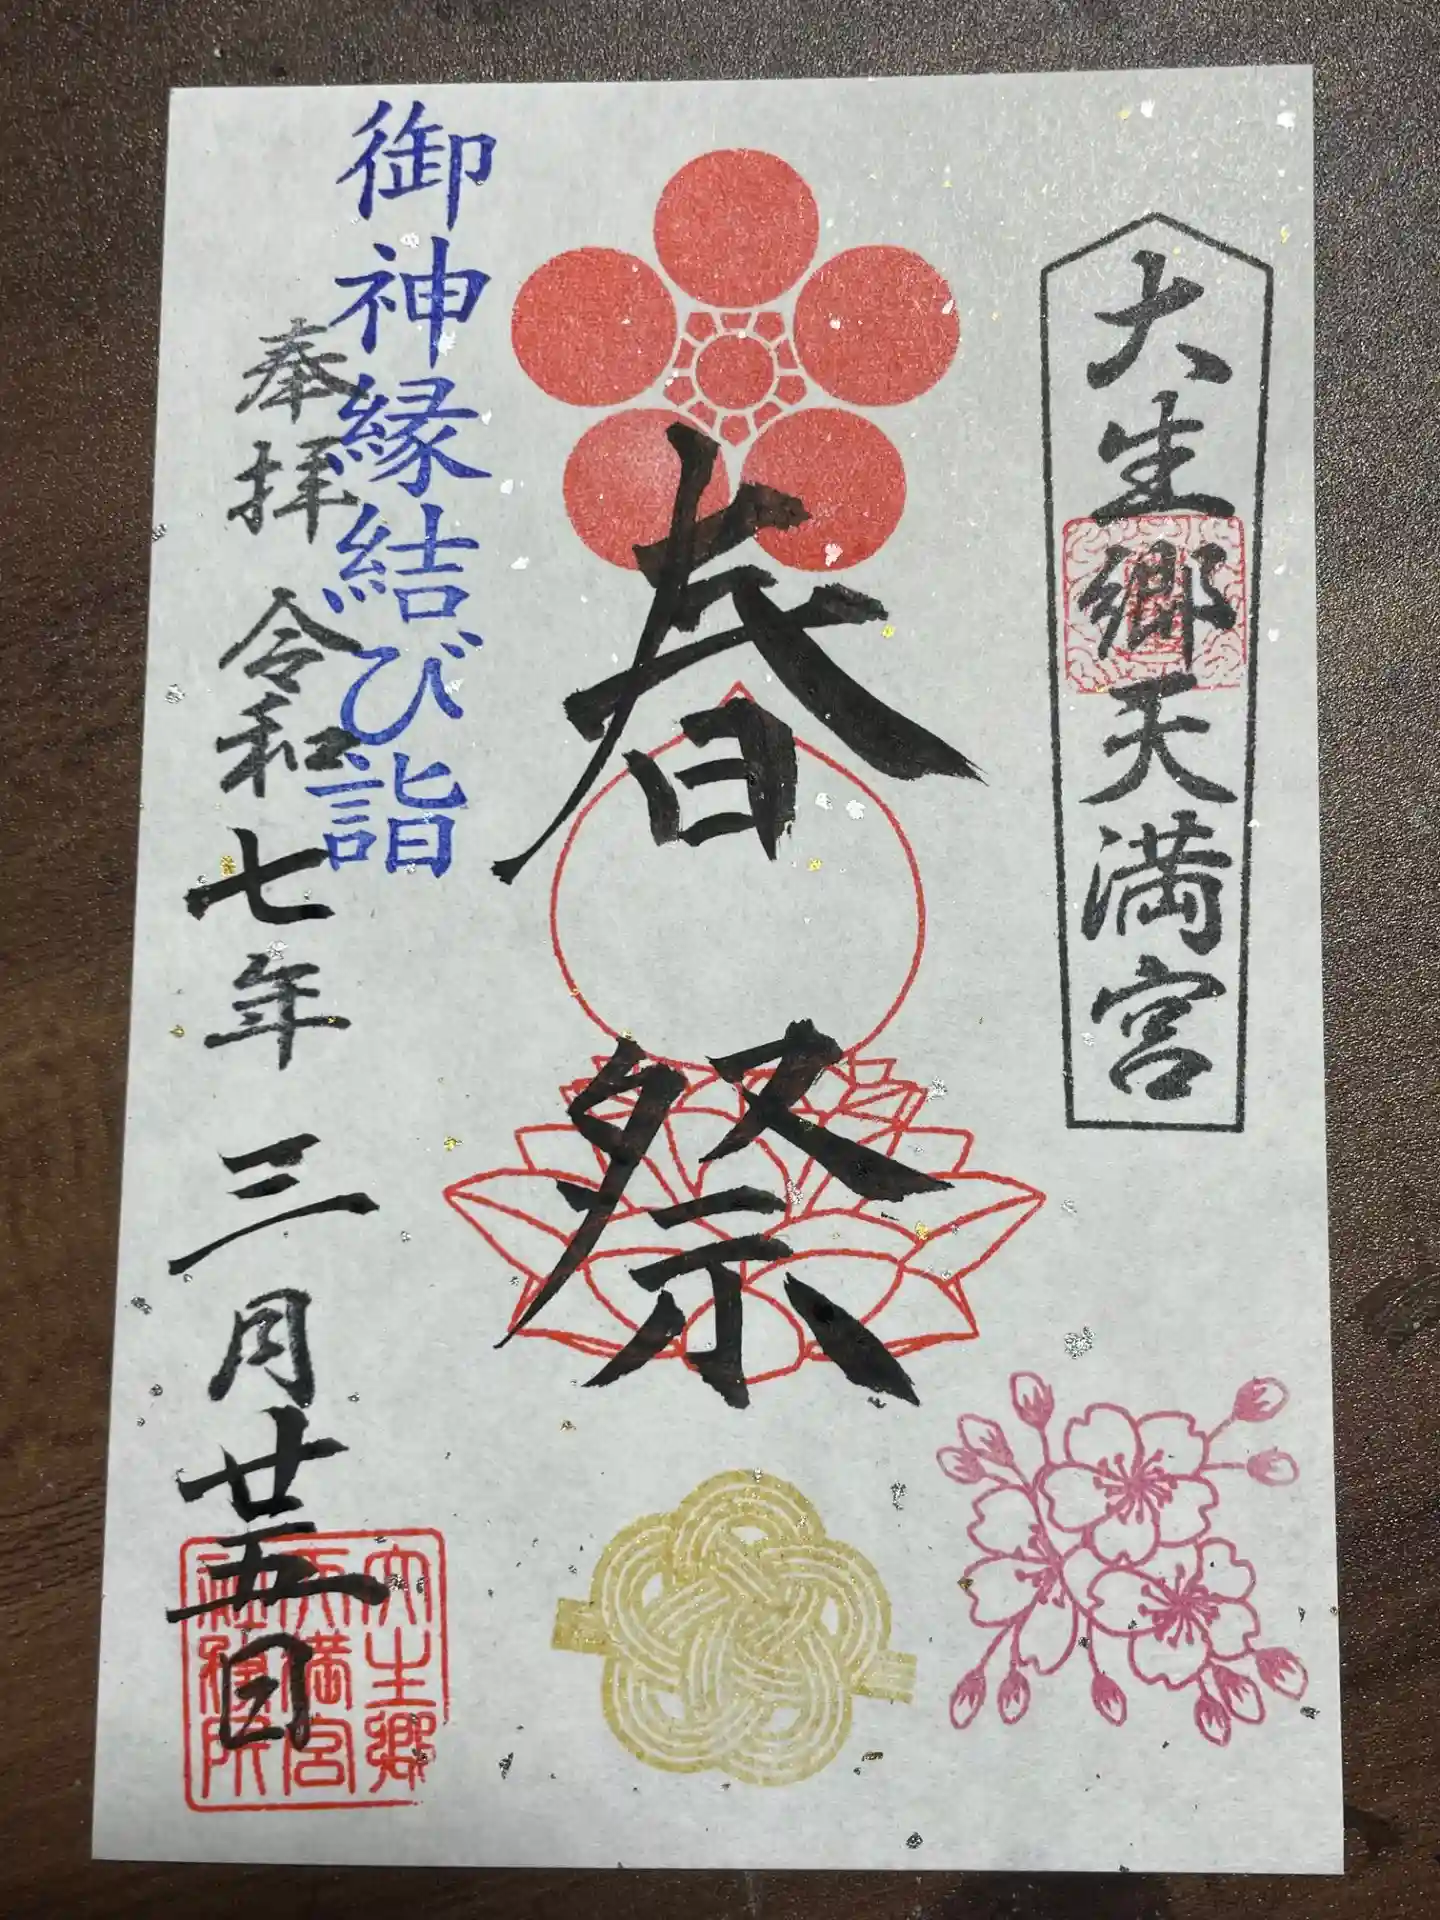 大生郷天満宮
春祭
御神縁結び詣
奉拝 令和七年 三月廿五日
大生郷
天満宮
社務所